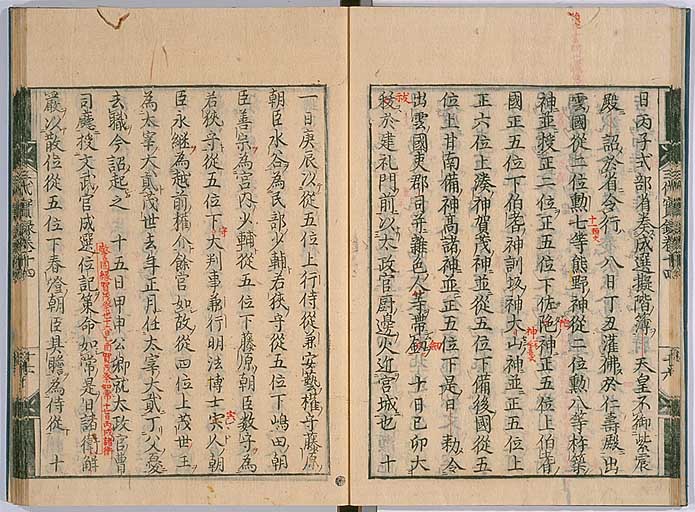 日丙子式部省奏成選擬階簿天皇不御紫宸
殿詔於省令行八日丁丑灌佛於仁壽殿出
雲國從二位勳七等熊野神從二位勳八等杵築
神並授正二位正五位下佐陁神正五位上伯耆
國正五位下伯耆神訓坂神大山神並正五位上
正六位上湊神賀茂神並從五位下備後國從五
位上甘南備神高諸神並正五位下是日勅令
出雲國吏郡司并雜色人等帶劔十日己卯大
秡於建礼門前以太政官厨邊火近宮城也十
一日庚辰以從五位上行侍從兼安藝權守藤原
朝臣水谷為民部少輔若狹守從五位下嶋田朝
臣善宗為宮内少輔從五位下藤原朝臣數守為
若狹守從五位下大判事兼行明法博士宍人朝
臣永継為越前權介餘官如故從四位上茂世王
為太宰大貳茂世去年正月任太宰大貳丁父憂
去職今詔起之十五日甲申公卿就太政官曹
司廳授文武官成選位記策命如常是日諸衛解
嚴以散位從五位下春燈朝臣具瞻為侍從十